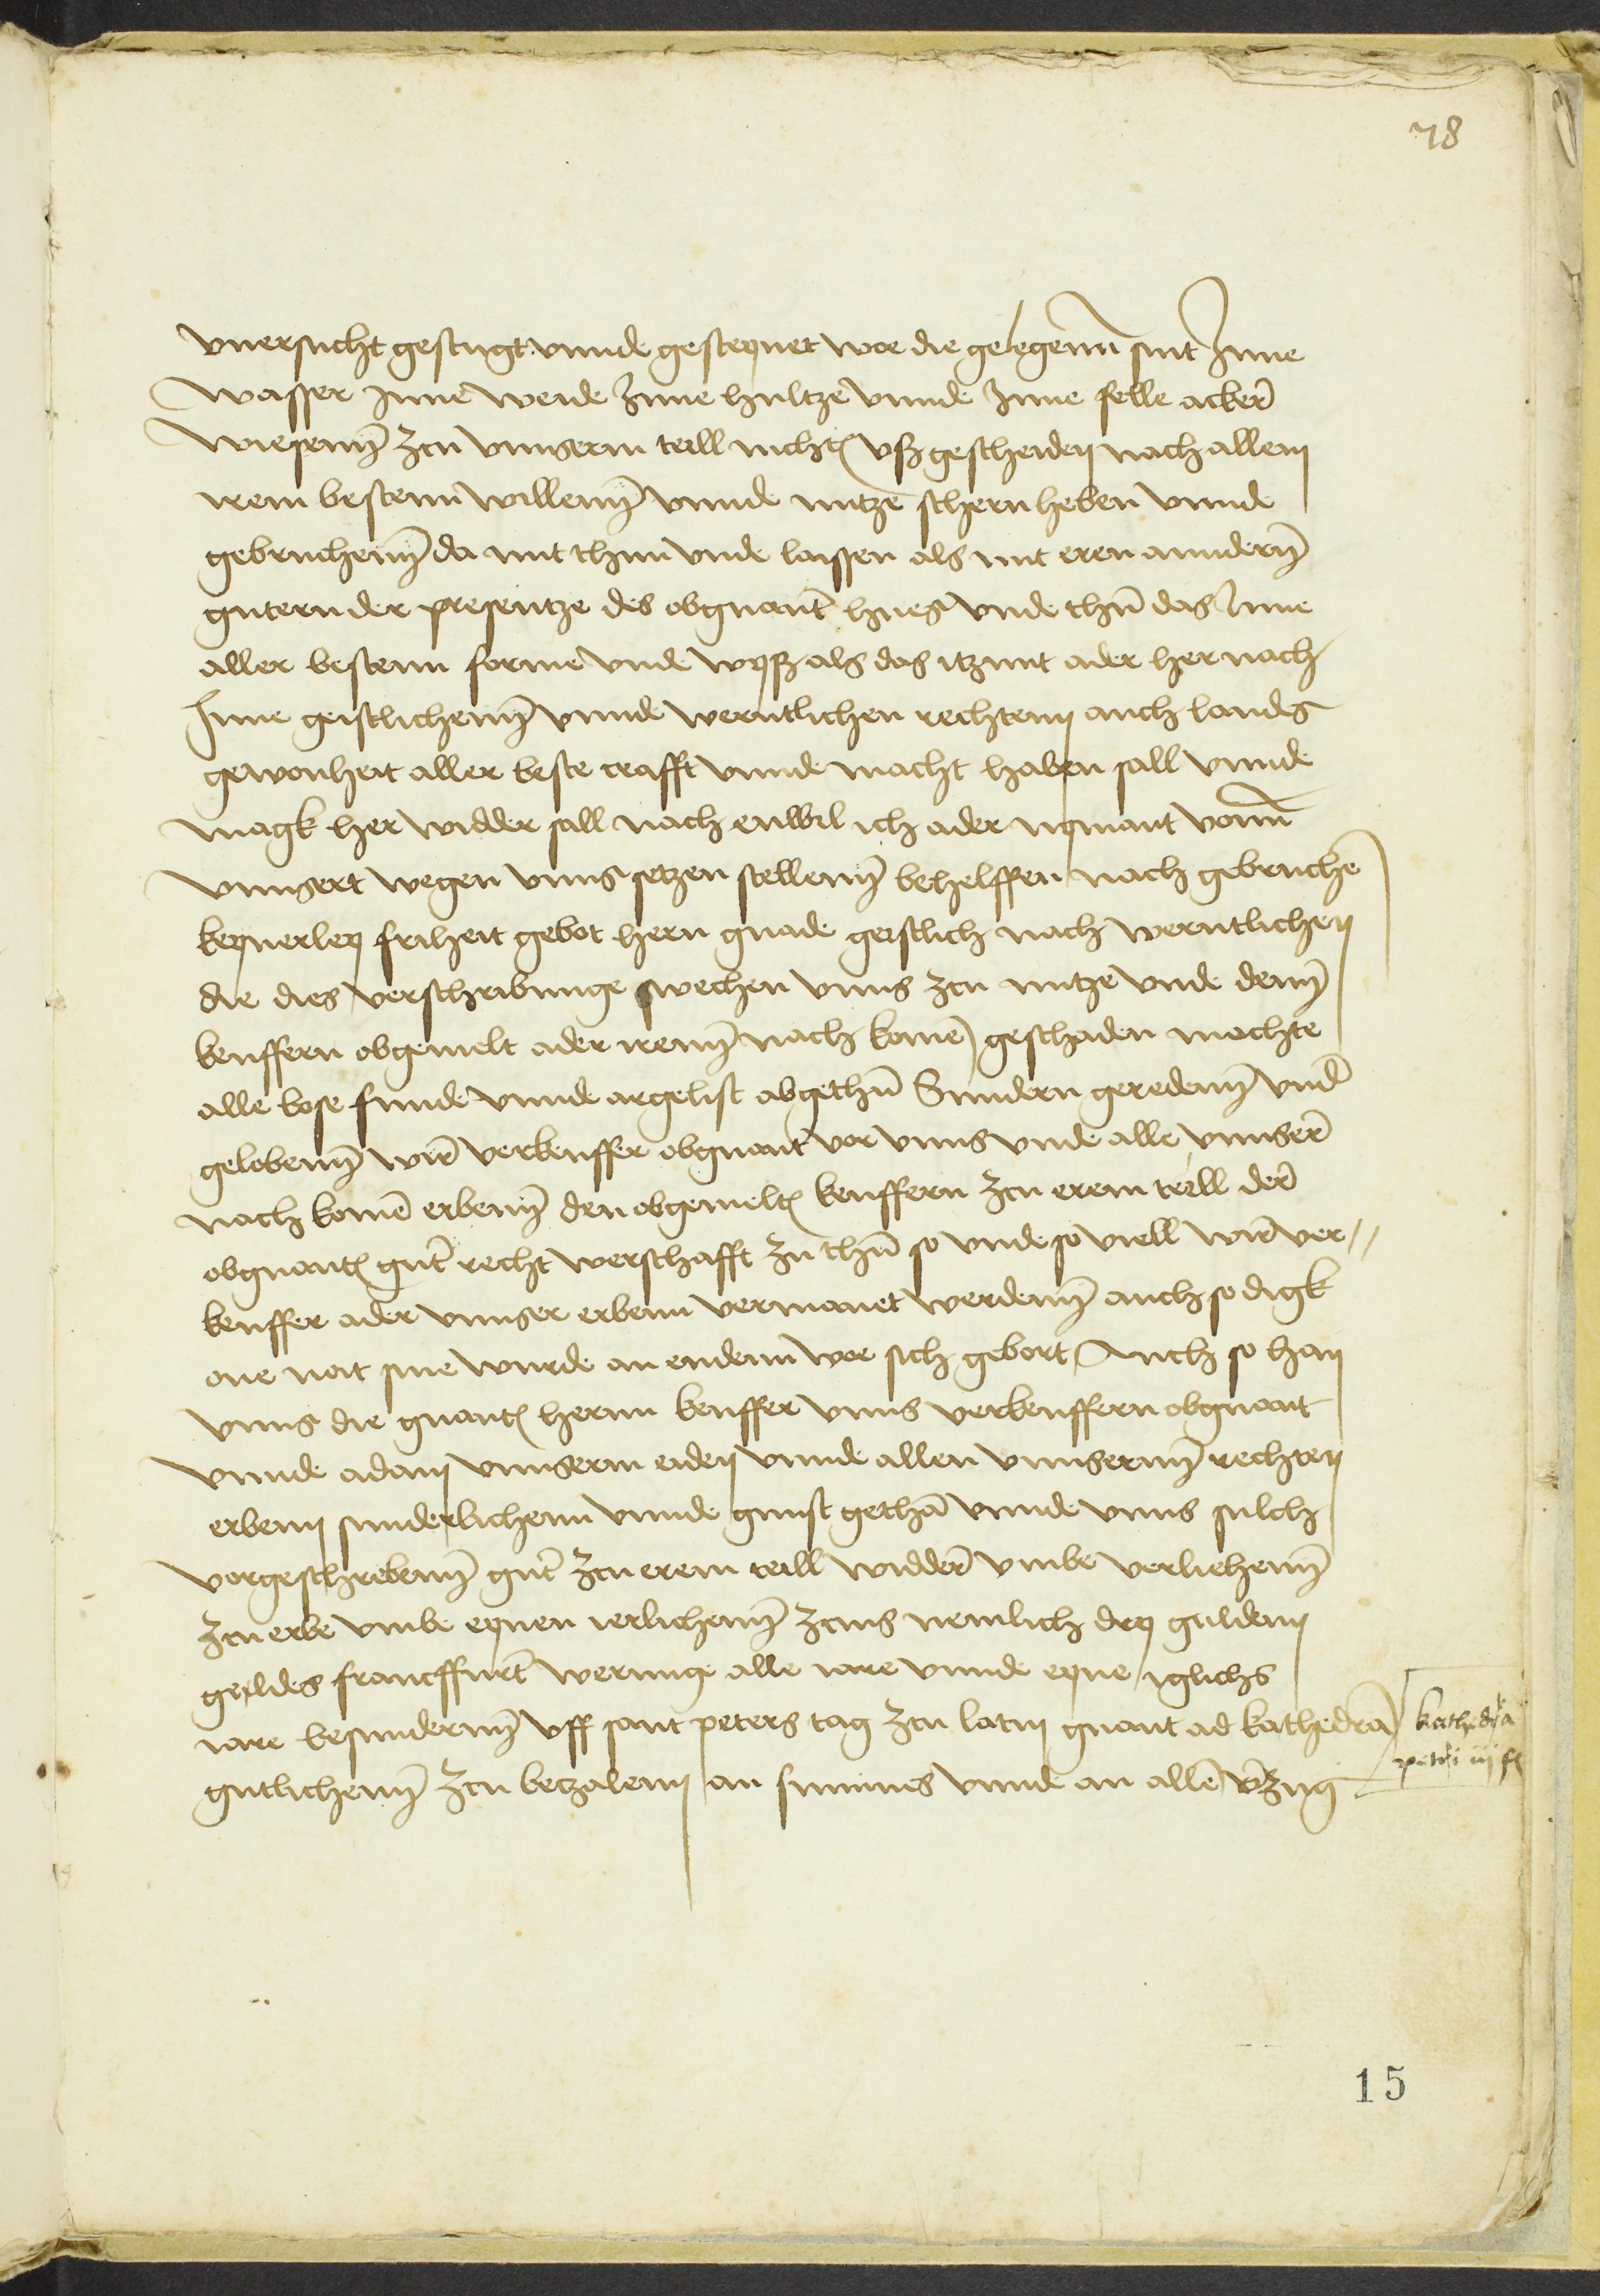 78
vnersucht gesteygt vnnde gesteynet woe die gelegenn sint Inne
wasser Inne weide Inne hultze vnnde Inne felle acker
wiesenn zcu vnnserm teill nichts vßgescheiden nach allem
irem bestenn willenn vnnde nutze schern heben vnnde
gebruchenn da mit thun vnde lassen als mit eren anndern
gutern der presentze des obgnant hues vnde thun das Inne
aller bestenn forme vnde wyß als das itzunt ader her nach
Inne geistlichenn vnnde werntlichen rechtenn auch landes
gewonheit aller beste crafft vnnde macht haben sall vnnde
magk her widder sall nach enwil ich ader nymant vonn
vnnsert wegen vnns setzen stellenn behelffen nach gebruchen
keynerley friheit gebot hern gnade geistlich nach werntlichen
die dies verschribunge swechen vnns zcu nutze vnde denn
keuffern obgemelt ader irenn nach komen geschaden mochte
alle bose funde vnnde argelist abgethun Sundern geredenn vnd
gelobenn wir verkeuffer obgnant vor vnns vnde alle vnnser
nach komen erbenn den obgemelten keuffern zcu erem teill der
obgnanten gut recht werschafft zu thun so vnde so viell wir ver //
keuffer ader vnnser erbenn vermanet werdenn auch so digk
one not sine wurde an endenn wor sich gebort Auch so han
vnns die gnanten hernn keuffer vnns verkeuffern obgnant
vnnde adam vnnserm eiden vnnde allen vnnsernn rechten
erbenn sunderlichenn vnnde gunst gethan vnnde vnns sulch
vorgeschrebenn gut zcu erem teill widder vmbe verliehenn
zcu erbe vmbe eynen ierlichenn zcins nemlich dry guldenn
geldes francffurt werunge alle iare vnnde eyne iglichs
iare besundernn vff sant peters tag zcu latin gnant ad kathedram
gutlichenn zcu betzalenn an sumnes vnnde an allen verzug
kathedra
petri iij fl
15